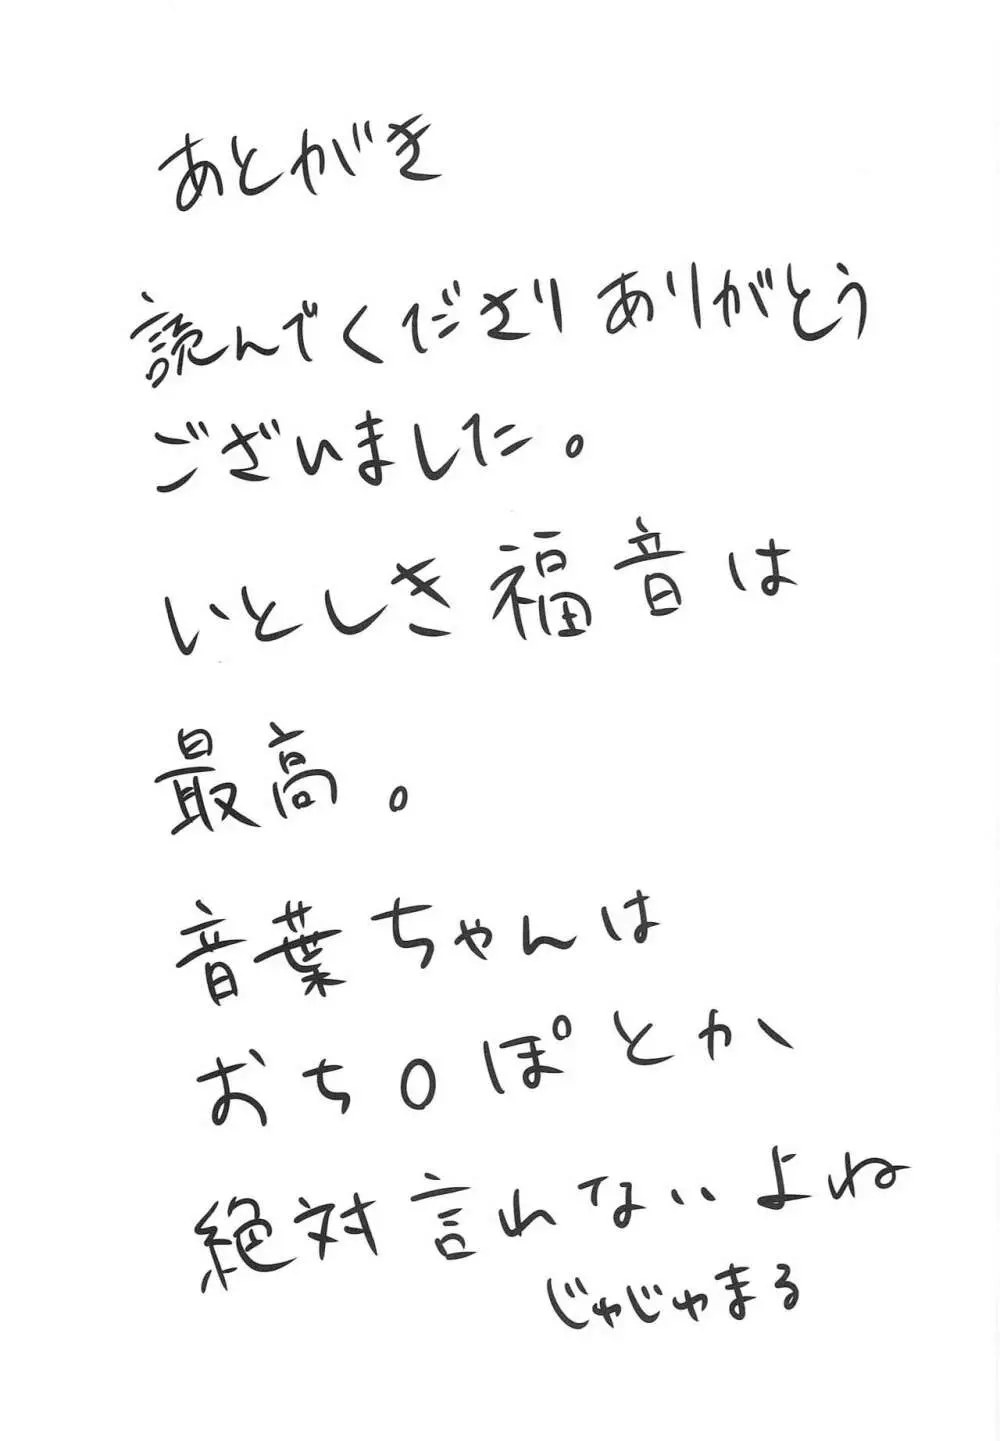 あとがき
読んでくださりありがとう
ございました。
いとしき福音は
最高。
音葉ちゃんは
おち〇ぽとか
絶対言れないよね
じゃじゃまる